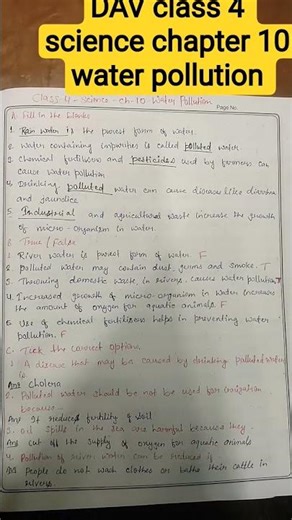 DAV class 4
science chapter 10
water pollution
Class-4-Science-Ch-10-Water Pollution
Page No.
A. Fill in the blanks
1. Rain water is the purest form of water.
2. Water containing impurities is called polluted water.
3. Chemical fertilisers and pesticides used by farmers can
cause water pollution
4. Drinking polluted water can cause diseases like diarrhoea
and jaundice.
5. Industrial and agricultural waste increase the growth
of micro-organism in water.
B. True / False
1. River water is purest form of water. F
2. polluted water may contain dust, germs and smoke. T
3. Throwing domestic waste in rivers, causes water pollution. T
4. Increased growth of micro-organism in water increases
the amount of oxygen for aquatic animals. F
5. Use of chemical fertilisers helps in preventing water
pollution. F
C. Tick the correct option.
1. A disease that may be caused by drinking polluted water
is
Ans Cholera
2. Polluted water should be not be used for irrigation
because-
Ans It reduces fertility of soil
3. Oil spills in the sea are harmful because they
Ans cut off the supply of oxygen for aquatic animals
4. Pollution of river water can be reduced if
Ans People do not wash clothes or bathe their cattle in
rivers